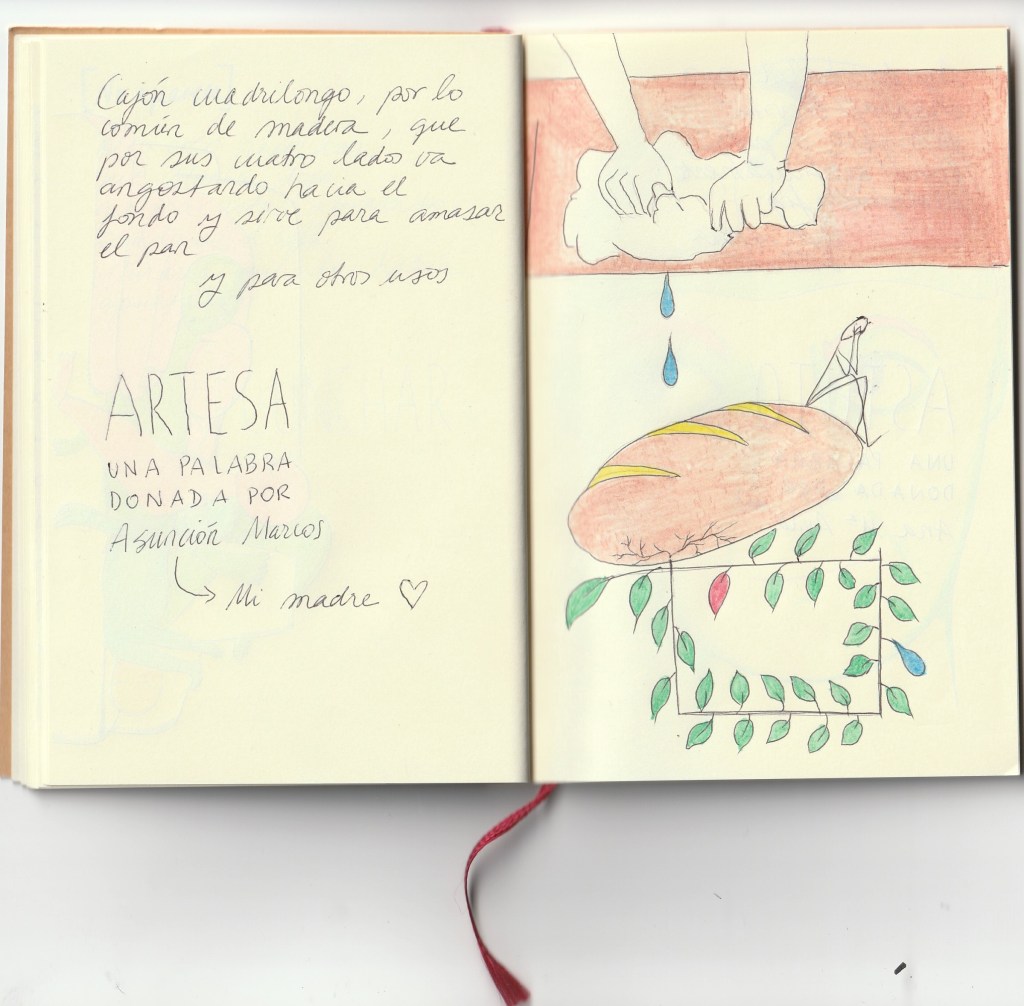 Cajón cuadrilongo, por lo
común de madera, que
por sus cuatro lados va
angostando hacia el
fondo y sirve para amasar
el pan
y para otros usos
ARTESA
UNA PALABRA
DONADA POR
Asunción Marcos
Mi madre ♡